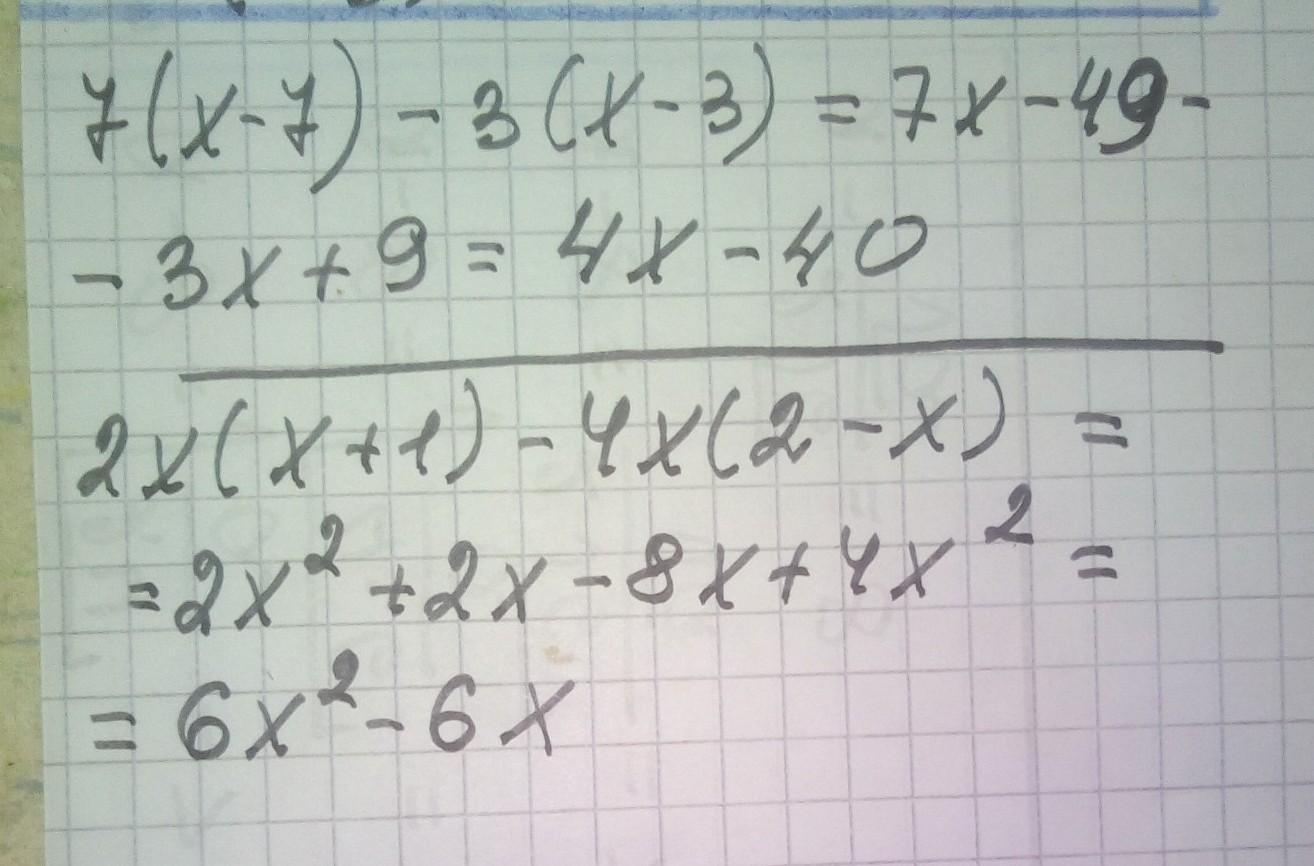 7(x-7) - 3(x-3) = 7x - 49 -
- 3x + 9 = 4x - 40
2x(x+1) - 4x(2-x) =
= 2x² + 2x - 8x + 4x² =
= 6x² - 6x